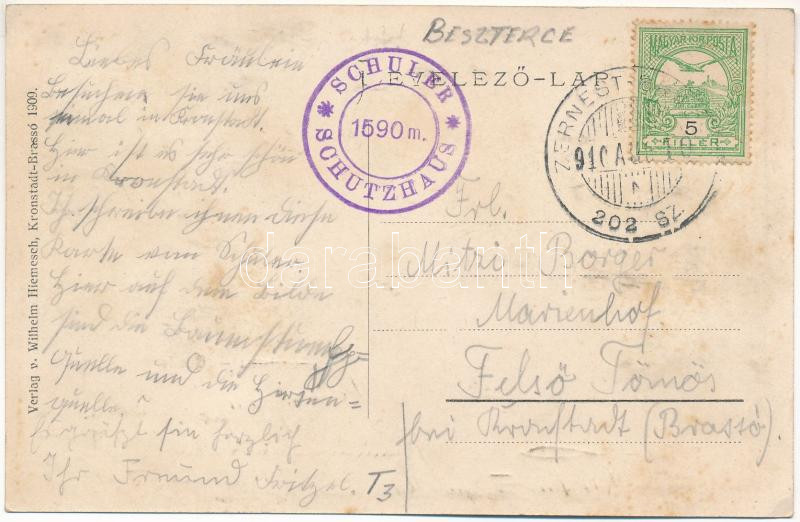 BESZTERCE
LEVELEZŐ-LAP
MAGYAR KIR. POSTA
5
FILLER
ZERNEST
910
202 SZ.
SCHULER
1590 m.
SCHUTZHAUS
Liebes Fräulein
Besuchen sie uns
einmal in Kronstadt.
Hier ist es sehr schön
in Kronstadt.
Ich schreibe ihnen diese
Karte vom Schuler.
Hier auf dem Bilde
sind die
Quelle und die Hirten-
quelle.
herzlich
Ihr Freund Fritzel.
T3
Frl.
Mitzi
Marienhof
Felsö Tömös
bei Kronstadt (Brassó)
Verlag v. Wilhelm Hiemesch, Kronstadt-Brassó 1909.
darabanth